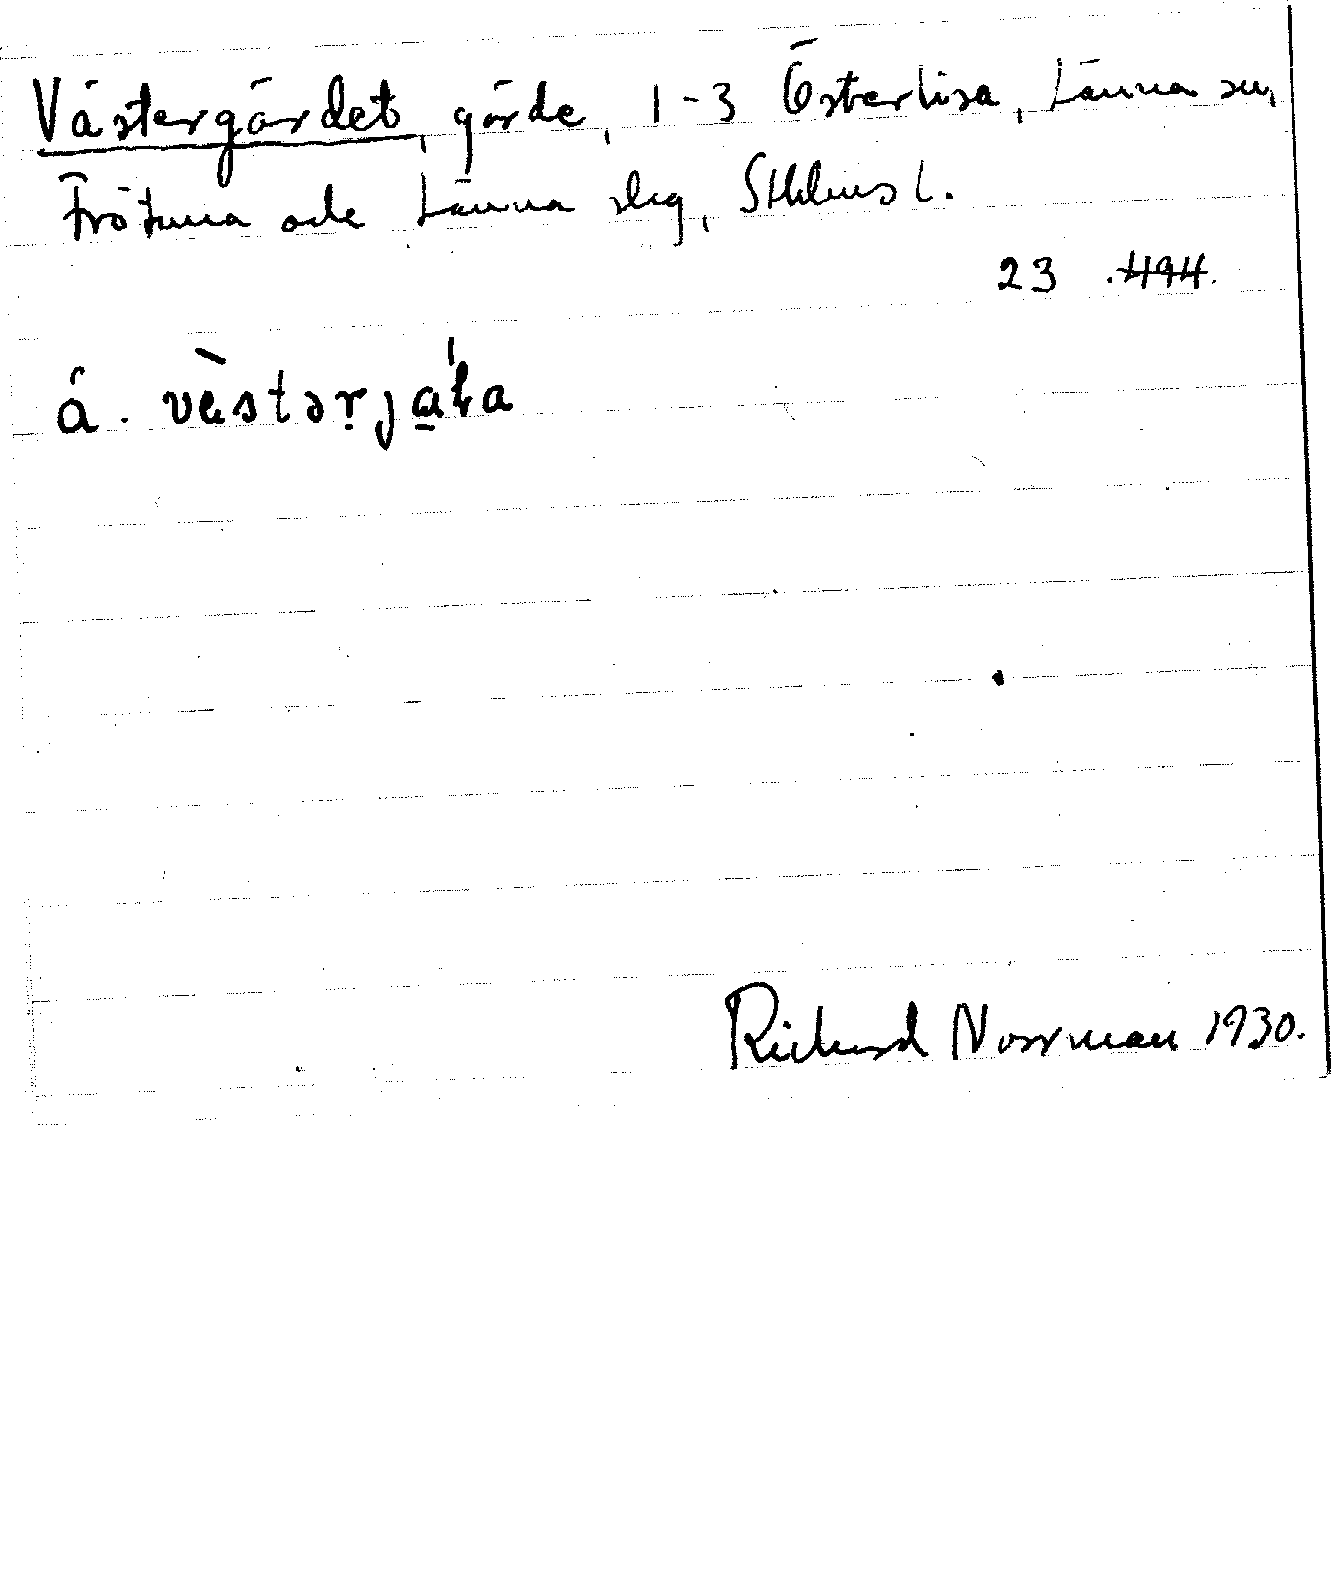 Västergärdet, gärde, 1-3 Österlisa, Länna sn,
Frötuna och Länna slg, Sthlms l.
23 494.
å. vèstərja
Richard Norrman 1930.